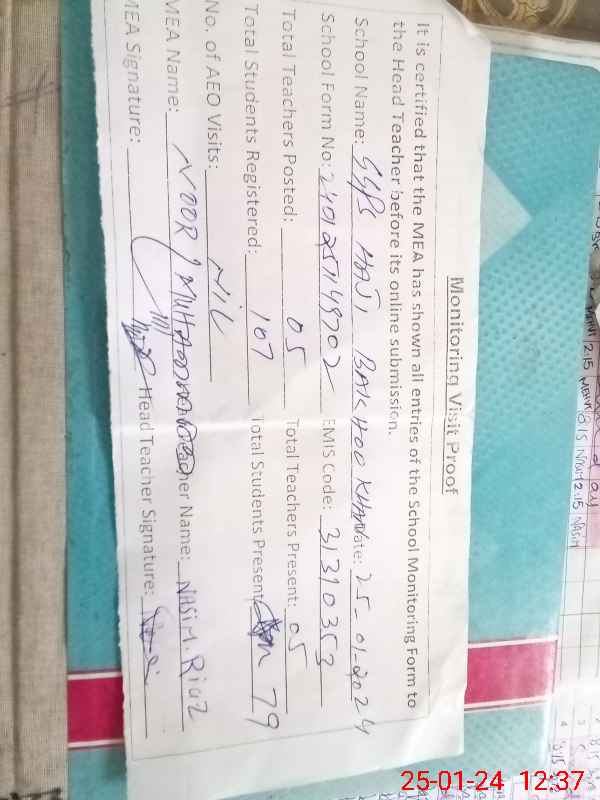 Monitoring Visit Proof
It is certified that the MEA has shown all entries of the School Monitoring Form to
the Head Teacher before its online submission.
School Name: GGPS HAJI BAKHOO KHAN Date: 25-01-2024
School Form No: EMIS Code: 31310353
Total Teachers Posted: 05 Total Teachers Present: 05
Total Students Registered: 107 Total Students Present: 79
No. of AEO Visits: NIL
MEA Name: NOOR MUHAMMAD Teacher Name: NASIM. RIAZ
MEA Signature: Head Teacher Signature:
25-01-24 12:37